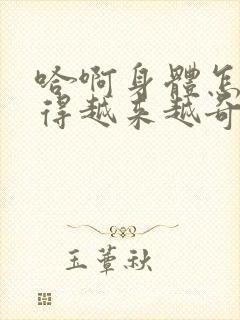 哈啊身體怎
得越来越奇
玉蕈秋